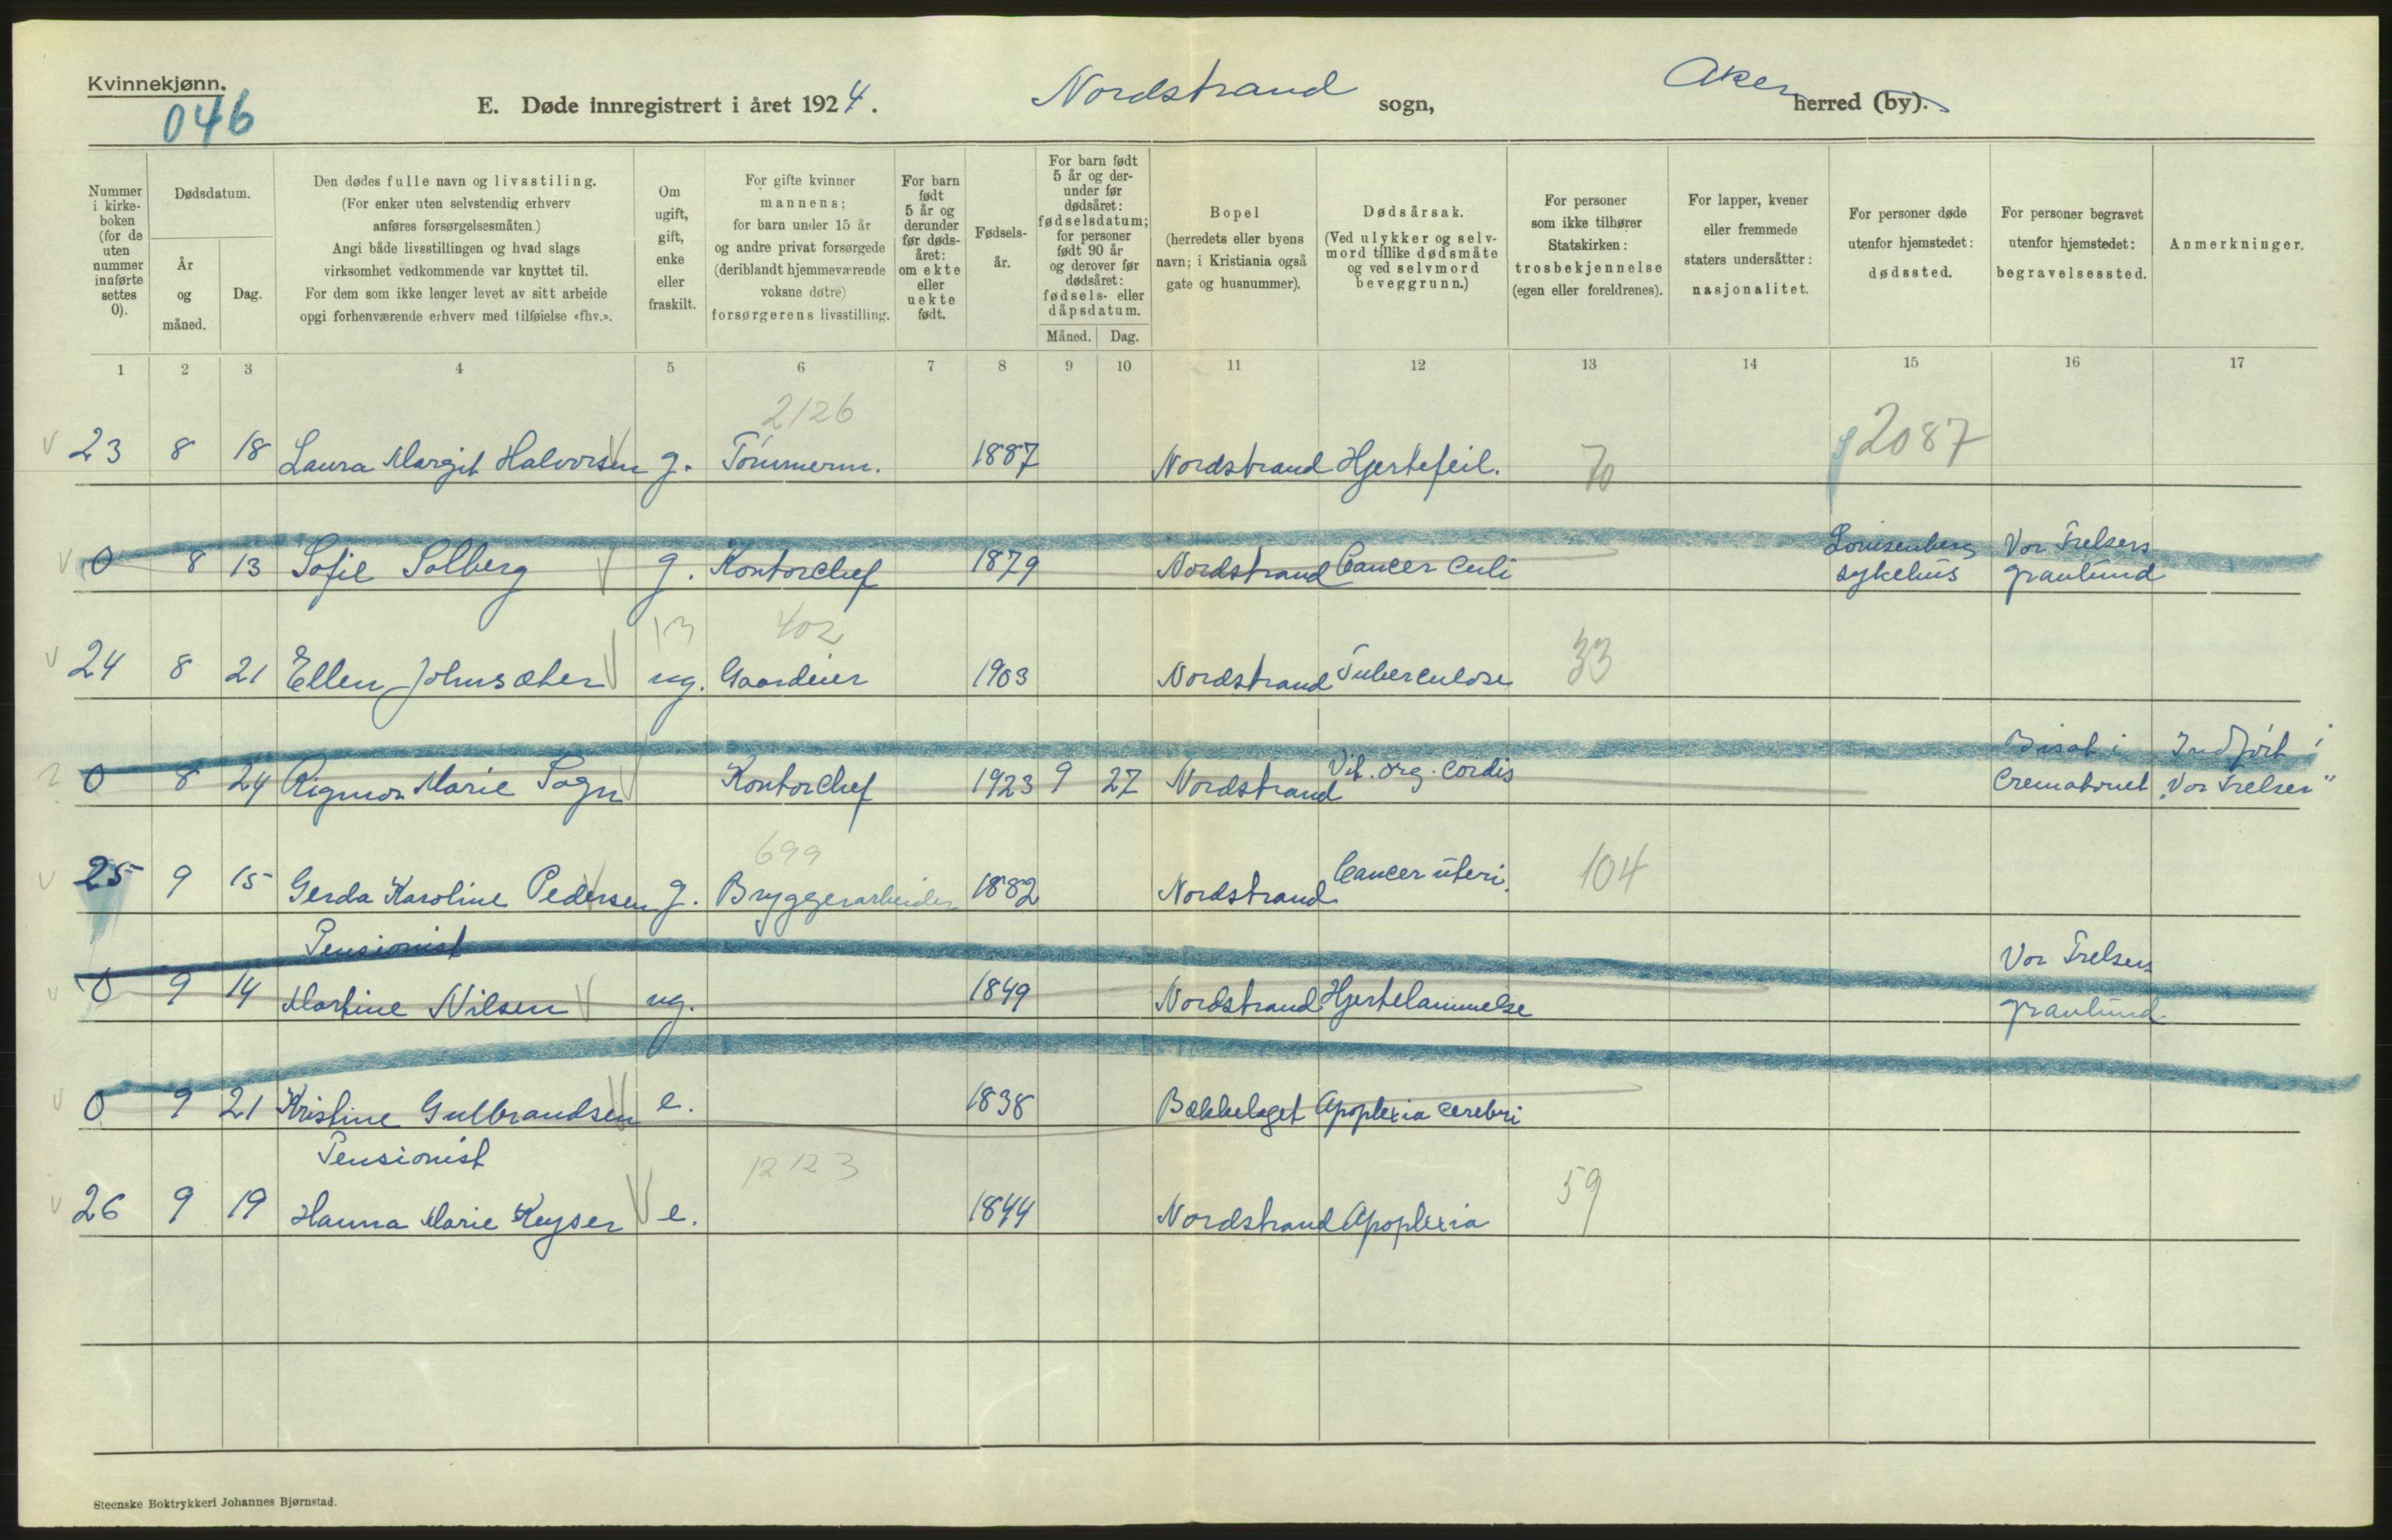 Kvinnekjønn.
046
E. Døde innregistrert i året 1924. Nordstrand sogn, Aker herred (by).
Nummer i kirke- boken (for de uten nummer innførte settes 0).
Dødsdatum.
År og måned.
Dag.
Den dødes fulle navn og livsstiling.
(For enker uten selvstendig erhverv
anføres forsørgelsesmåten.)
Angi både livsstillingen og hvad slags
virksomhet vedkommende var knyttet til.
For dem som ikke lenger levet av sitt arbeide
opgi forhenværende erhverv med tilføielse «fhv.».
Om ugift, gift, enke eller fraskilt.
For gifte kvinner
mannens;
for barn under 15 år
og andre privat forsørgede
(deriblandt hjemmeværende
voksne døtre)
forsørgerens livsstilling.
For barn født 5 år og derunder før døds- året: om ekte eller uekte født.
Fødsels- år.
For barn født 5 år og der- under før dødsåret: fødselsdatum; for personer født 90 år og derover før dødsåret: fødsels- eller dåpsdatum.
Måned. Dag.
Bopel
(herredets eller byens
navn; i Kristiania også
gate og husnummer).
Dødsårsak.
(Ved ulykker og selv-
mord tillike dødsmåte
og ved selvmord
beveggrunn.)
For personer
som ikke tilhører
Statskirken:
trosbekjennelse
(egen eller foreldrenes).
For lapper, kvener
eller fremmede
staters undersåtter:
nasjonalitet.
For personer døde
utenfor hjemstedet:
dødssted.
For personer begravet
utenfor hjemstedet:
begravelsessted.
Anmerkninger.
1 2 3 4 5 6 7 8 9 10 11 12 13 14 15 16 17
2126
23 8 18 Laura Margit Halvorsen g. Tømmerm. 1887 Nordstrand Hjertefeil. 70 2087
Vor Frelsers
0 8 13 Sofie Solberg g. Kontorchef 1879 Nordstrand Cancer sykehus gravlund
13 402
24 8 21 Ellen Johnsæter ug. Gaardeier 1903 Nordstrand Tuberculose 33
Bisat i Indført i
0 8 24 Rigmor Marie Sogn Kontorchef 1923 9 27 Nordstrand Vit. org. cordis Crematoriet "Vor Frelser"
699
25 9 15 Gerda Karoline Pedersen g. Bryggeriarbeider 1882 Nordstrand Cancer uteri. 104
Pensionist Vor Frelsers
0 9 14 Martine Nilsen ug. 1849 Nordstrand Hjertelammelse gravlund
0 9 21 Kristine Gulbrandsen e. 1838 Bækkelaget Apoplexia cerebri
Pensionist 12123
26 9 19 Hanna Marie Keyser e. 1844 Nordstrand Apoplexia 59
Steenske Boktrykkeri Johannes Bjørnstad.